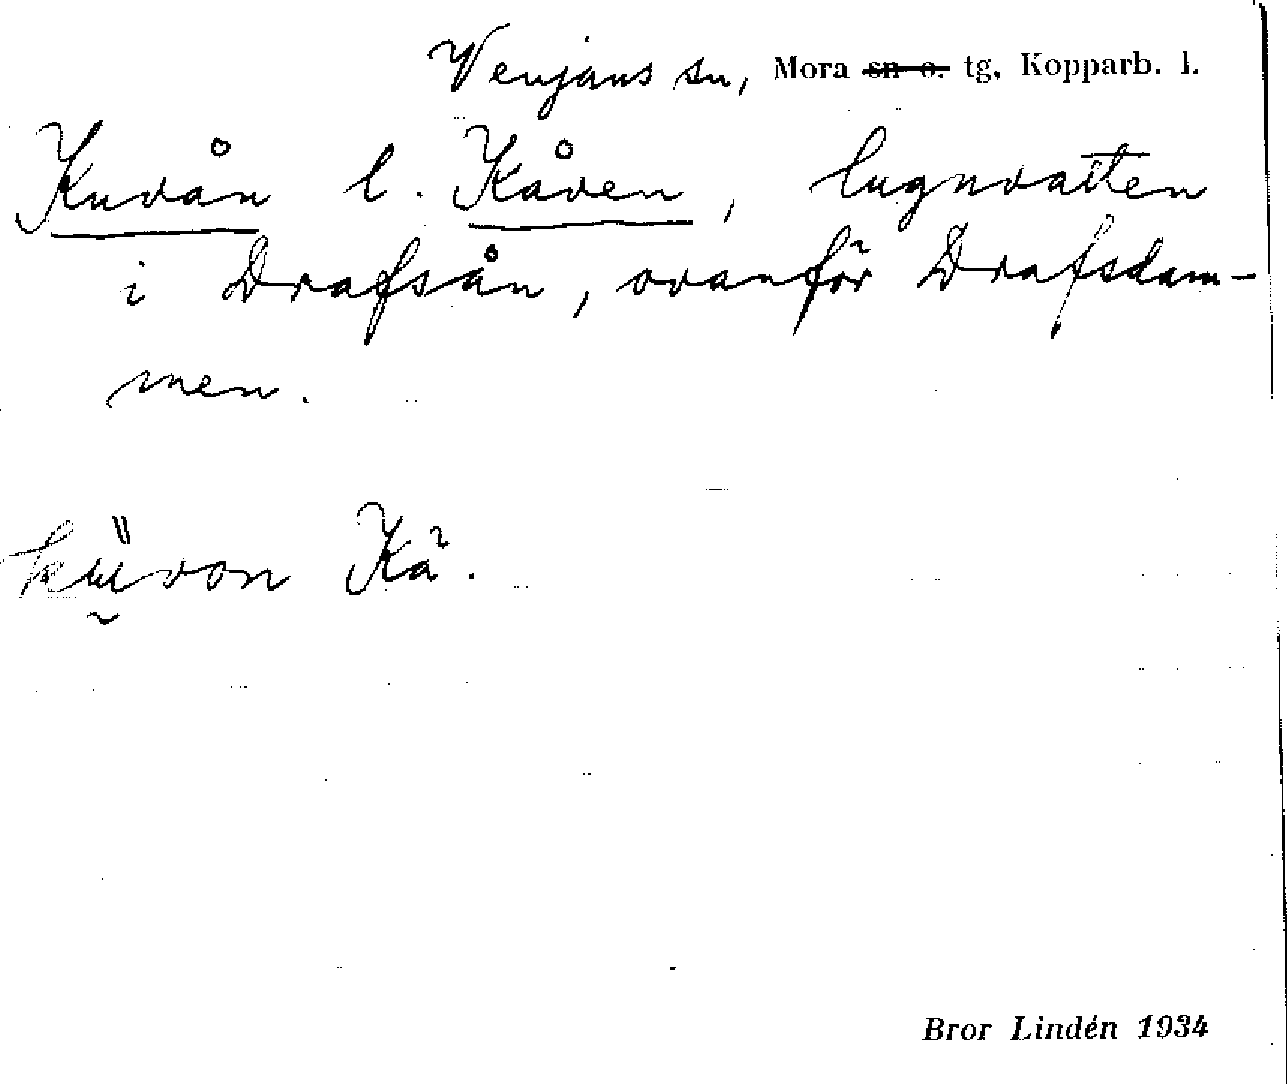 Venjans sn, Mora sn o. tg, Kopparb. l.
Kuvån l. Kåven, lugnvatten
i Drafsån, ovanför Drafsdam-
men.
Kä.
Bror Lindén 1934